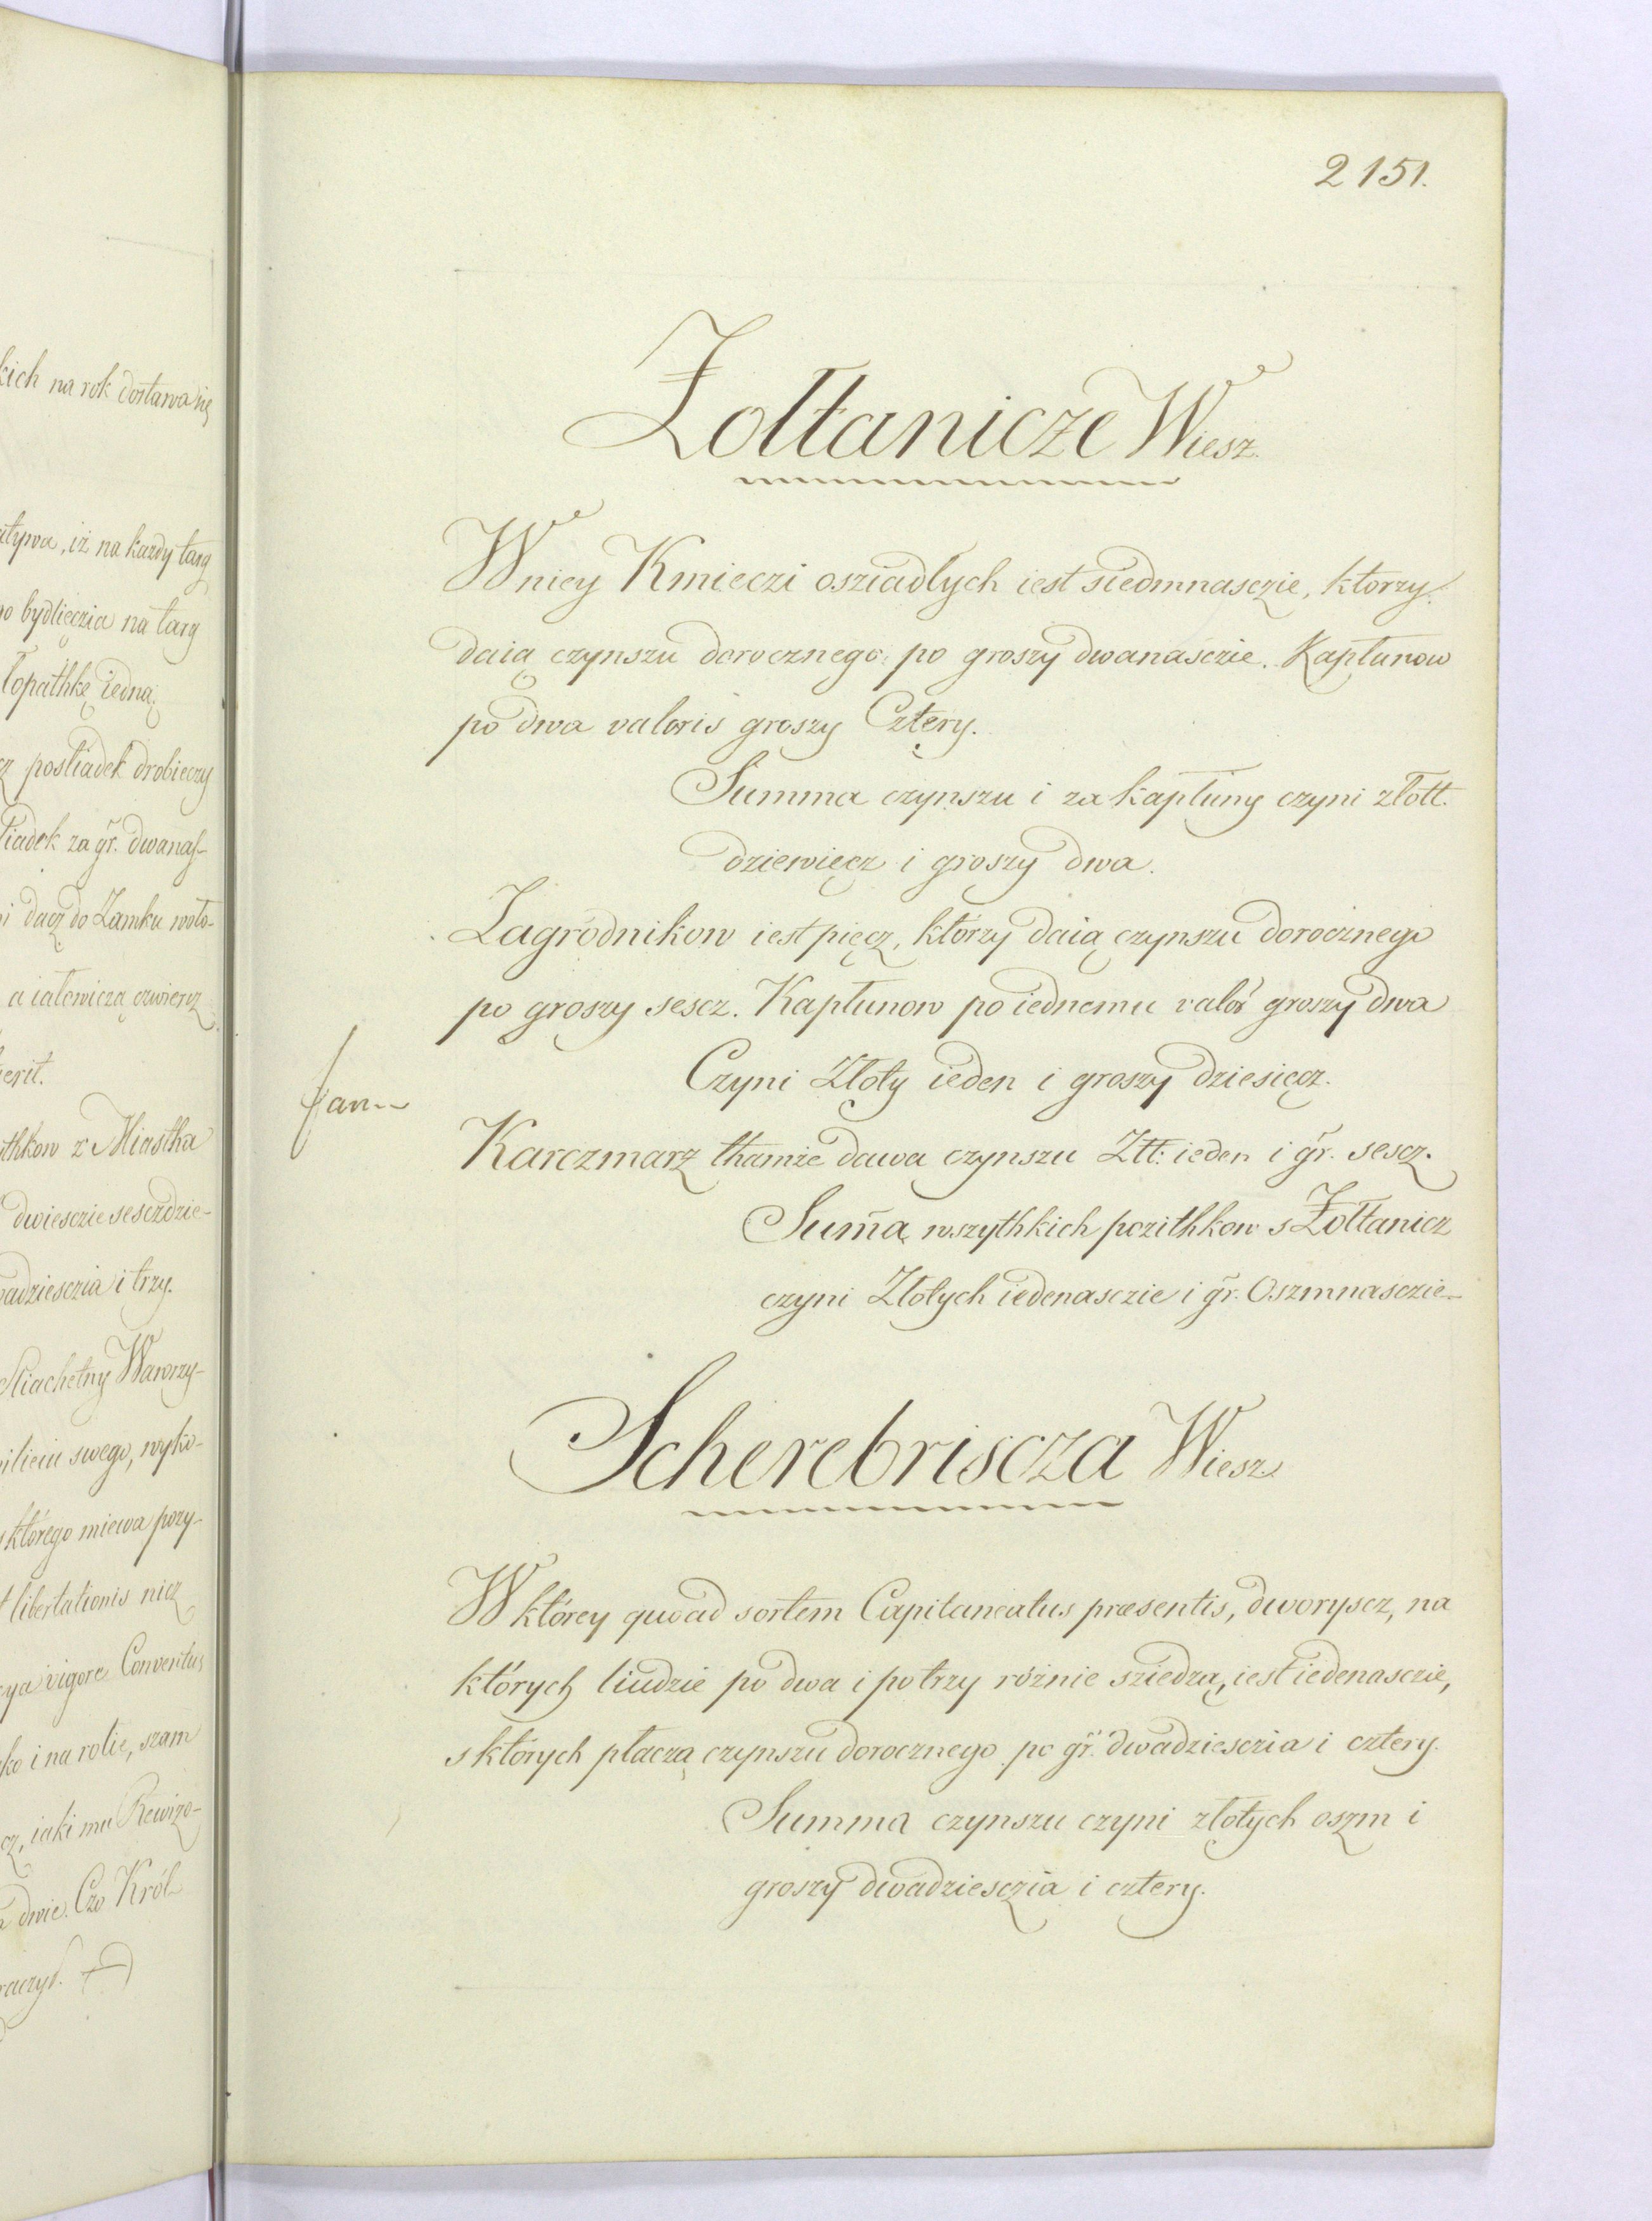 kich na rok dostawa się
atywa, iż na kazdy targ
bydlięczia na targ
łopathkę iedną.
postiadek drobieczy
za gr. dwanas-
dacz do Zamku woło-
a iatowiczą czwiercz
erit.
ythkow z Miastha
dwiesczie sesczdzie-
adziesczia i trzy.
Sliachetny Wawrzy-
swego, wyko-
którego miewa pozy-
libertationis nicz
vigore Conventus
ko i na rolie, szam
cz, iaki mu Rewizo-
dwie. Czo Król
raczył.
2151.
Żołtanicze Wiesz.
W niey Kmieczi osziadłych iest siedmnasczie, ktorzy
daią czynszu dorocznego po groszy dwanasczie. Kapłunow
po dwa valoris groszy Cztery.
Summa czynszu i za kapłuny czyni złott.
dziewięcz i groszy dwa.
Zagrodnikow iest pięcz, którzy daią czynszu dorocznego
po groszy sescz. Kapłunow po iednemu valor groszy dwa
Czyni Złoty ieden i groszy dziesięcz.
Karczmarz thamże dawa czynszu Złł: ieden i gr. sescz.
Sum̄a wszythkich pozithkow s Żołtanicz
czyni Złotych iedenasczie i gr. Oszmnasczie
Scherebriscza Wiesz.
W którey quoad sortem Capitaneatus præsentis, dworyscz, na
których liudzie po dwa i po trzy różnie sziedzą, iest iedenasczie,
s których płaczą czynszu dorocznego po gr. dwadziesczia i cztery.
Summa czynszu czyni złotych oszm i
groszy dwadziesczia i cztery.